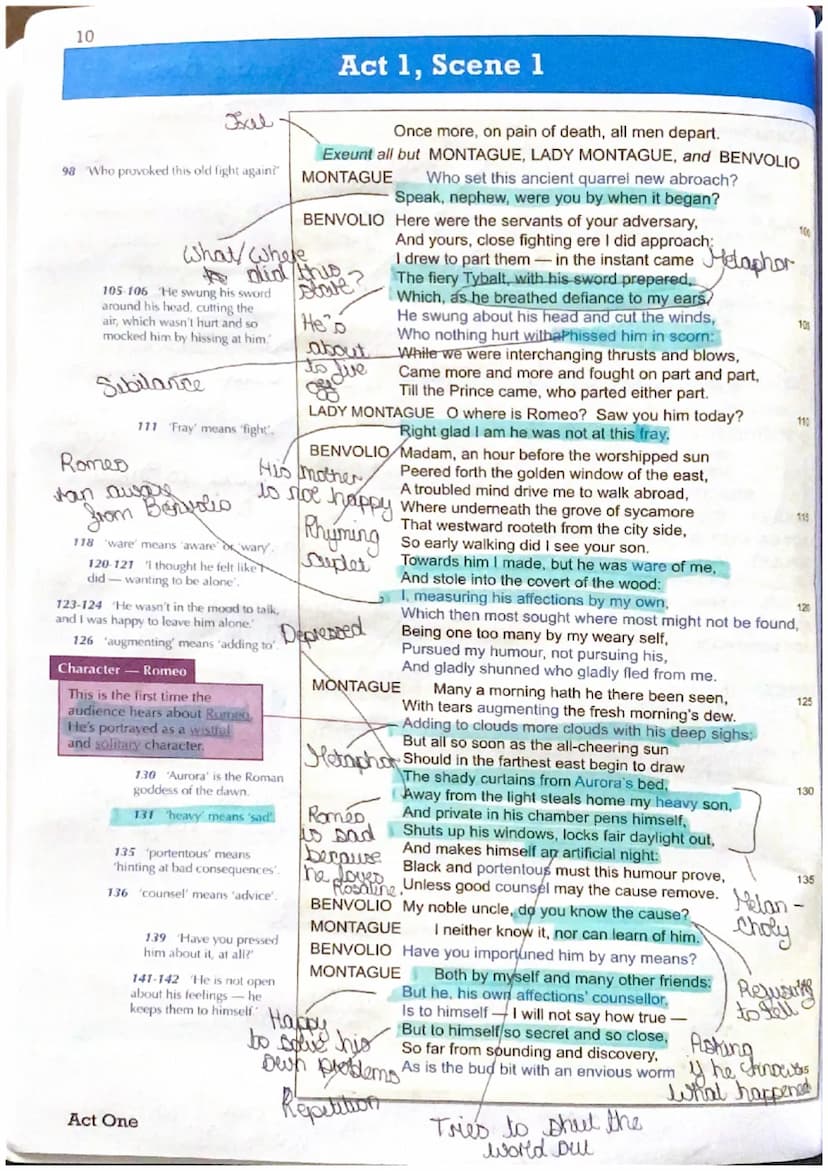 10
Act 1, Scene 1
Once more, on pain of death, all men depart.
Exeunt all but MONTAGUE, LADY MONTAGUE, and BENVOLIO
98 'Who provoked this old fight again?'
MONTAGUE Who set this ancient quarrel new abroach?
Speak, nephew, were you by when it began?
BENVOLIO Here were the servants of your adversary,
100
And yours, close fighting ere I did approach:
What/Where
did this
I drew to part them — in the instant came
Metaphor
The fiery Tybalt, with his sword prepared,
105-106 'He swung his sword
around his head, cutting the
air, which wasn't hurt and so
mocked him by hissing at him.'
Which, as he breathed defiance to my ears,
He's
about
to
off
He swung about his head and cut the winds,
105
Who nothing hurt withal hissed him in scorn:
Sibilance
While we were interchanging thrusts and blows,
Came more and more and fought on part and part,
Till the Prince came, who parted either part.
LADY MONTAGUE O where is Romeo? Saw you him today?
110
111 'Fray' means 'fight'.
Right glad I am he was not at this fray.
Romeo
ran away
from Benvolio
His mother
is not happy
BENVOLIO Madam, an hour before the worshipped sun
Peered forth the golden window of the east,
A troubled mind drive me to walk abroad,
Where underneath the grove of sycamore
115
Rhyming
couplet
That westward rooteth from the city side,
So early walking did I see your son.
118 'ware' means 'aware' or 'wary'.
Towards him I made, but he was ware of me,
120-121 'I thought he felt like I
did — wanting to be alone'.
And stole into the covert of the wood:
I, measuring his affections by my own,
120
123-124 'He wasn't in the mood to talk,
and I was happy to leave him alone.'
Which then most sought where most might not be found,
Being one too many by my weary self,
Depressed
126 'augmenting' means 'adding to'.
Pursued my humour, not pursuing his,
And gladly shunned who gladly fled from me.
Character — Romeo
This is the first time the
audience hears about Romeo.
He's portrayed as a wistful
and solitary character.
MONTAGUE Many a morning hath he there been seen,
125
With tears augmenting the fresh morning's dew.
Adding to clouds more clouds with his deep sighs;
But all so soon as the all-cheering sun
Metaphor
Should in the farthest east begin to draw
130 'Aurora' is the Roman
goddess of the dawn.
The shady curtains from Aurora's bed,
130
131 'heavy' means 'sad'.
Away from the light steals home my heavy son,
Romeo
is sad
because
he loves
Rosaline
And private in his chamber pens himself,
Shuts up his windows, locks fair daylight out,
And makes himself an artificial night:
135 'portentous' means
'hinting at bad consequences'.
Black and portentous must this humour prove,
135
136 'counsel' means 'advice'.
Unless good counsel may the cause remove.
Melan-
choly
BENVOLIO My noble uncle, do you know the cause?
MONTAGUE I neither know it, nor can learn of him.
139 'Have you pressed
him about it, at all?'
BENVOLIO Have you importuned him by any means?
Refusing
to tell
141-142 'He is not open
about his feelings — he
keeps them to himself.'
MONTAGUE Both by myself and many other friends:
But he, his own affections' counsellor,
Is to himself — I will not say how true —
Happy
to solve his
own problems
But to himself so secret and so close,
Asking
if he knows
what happened
So far from sounding and discovery,
As is the bud bit with an envious worm
Repetition
Act One
Tries to shut the
world out